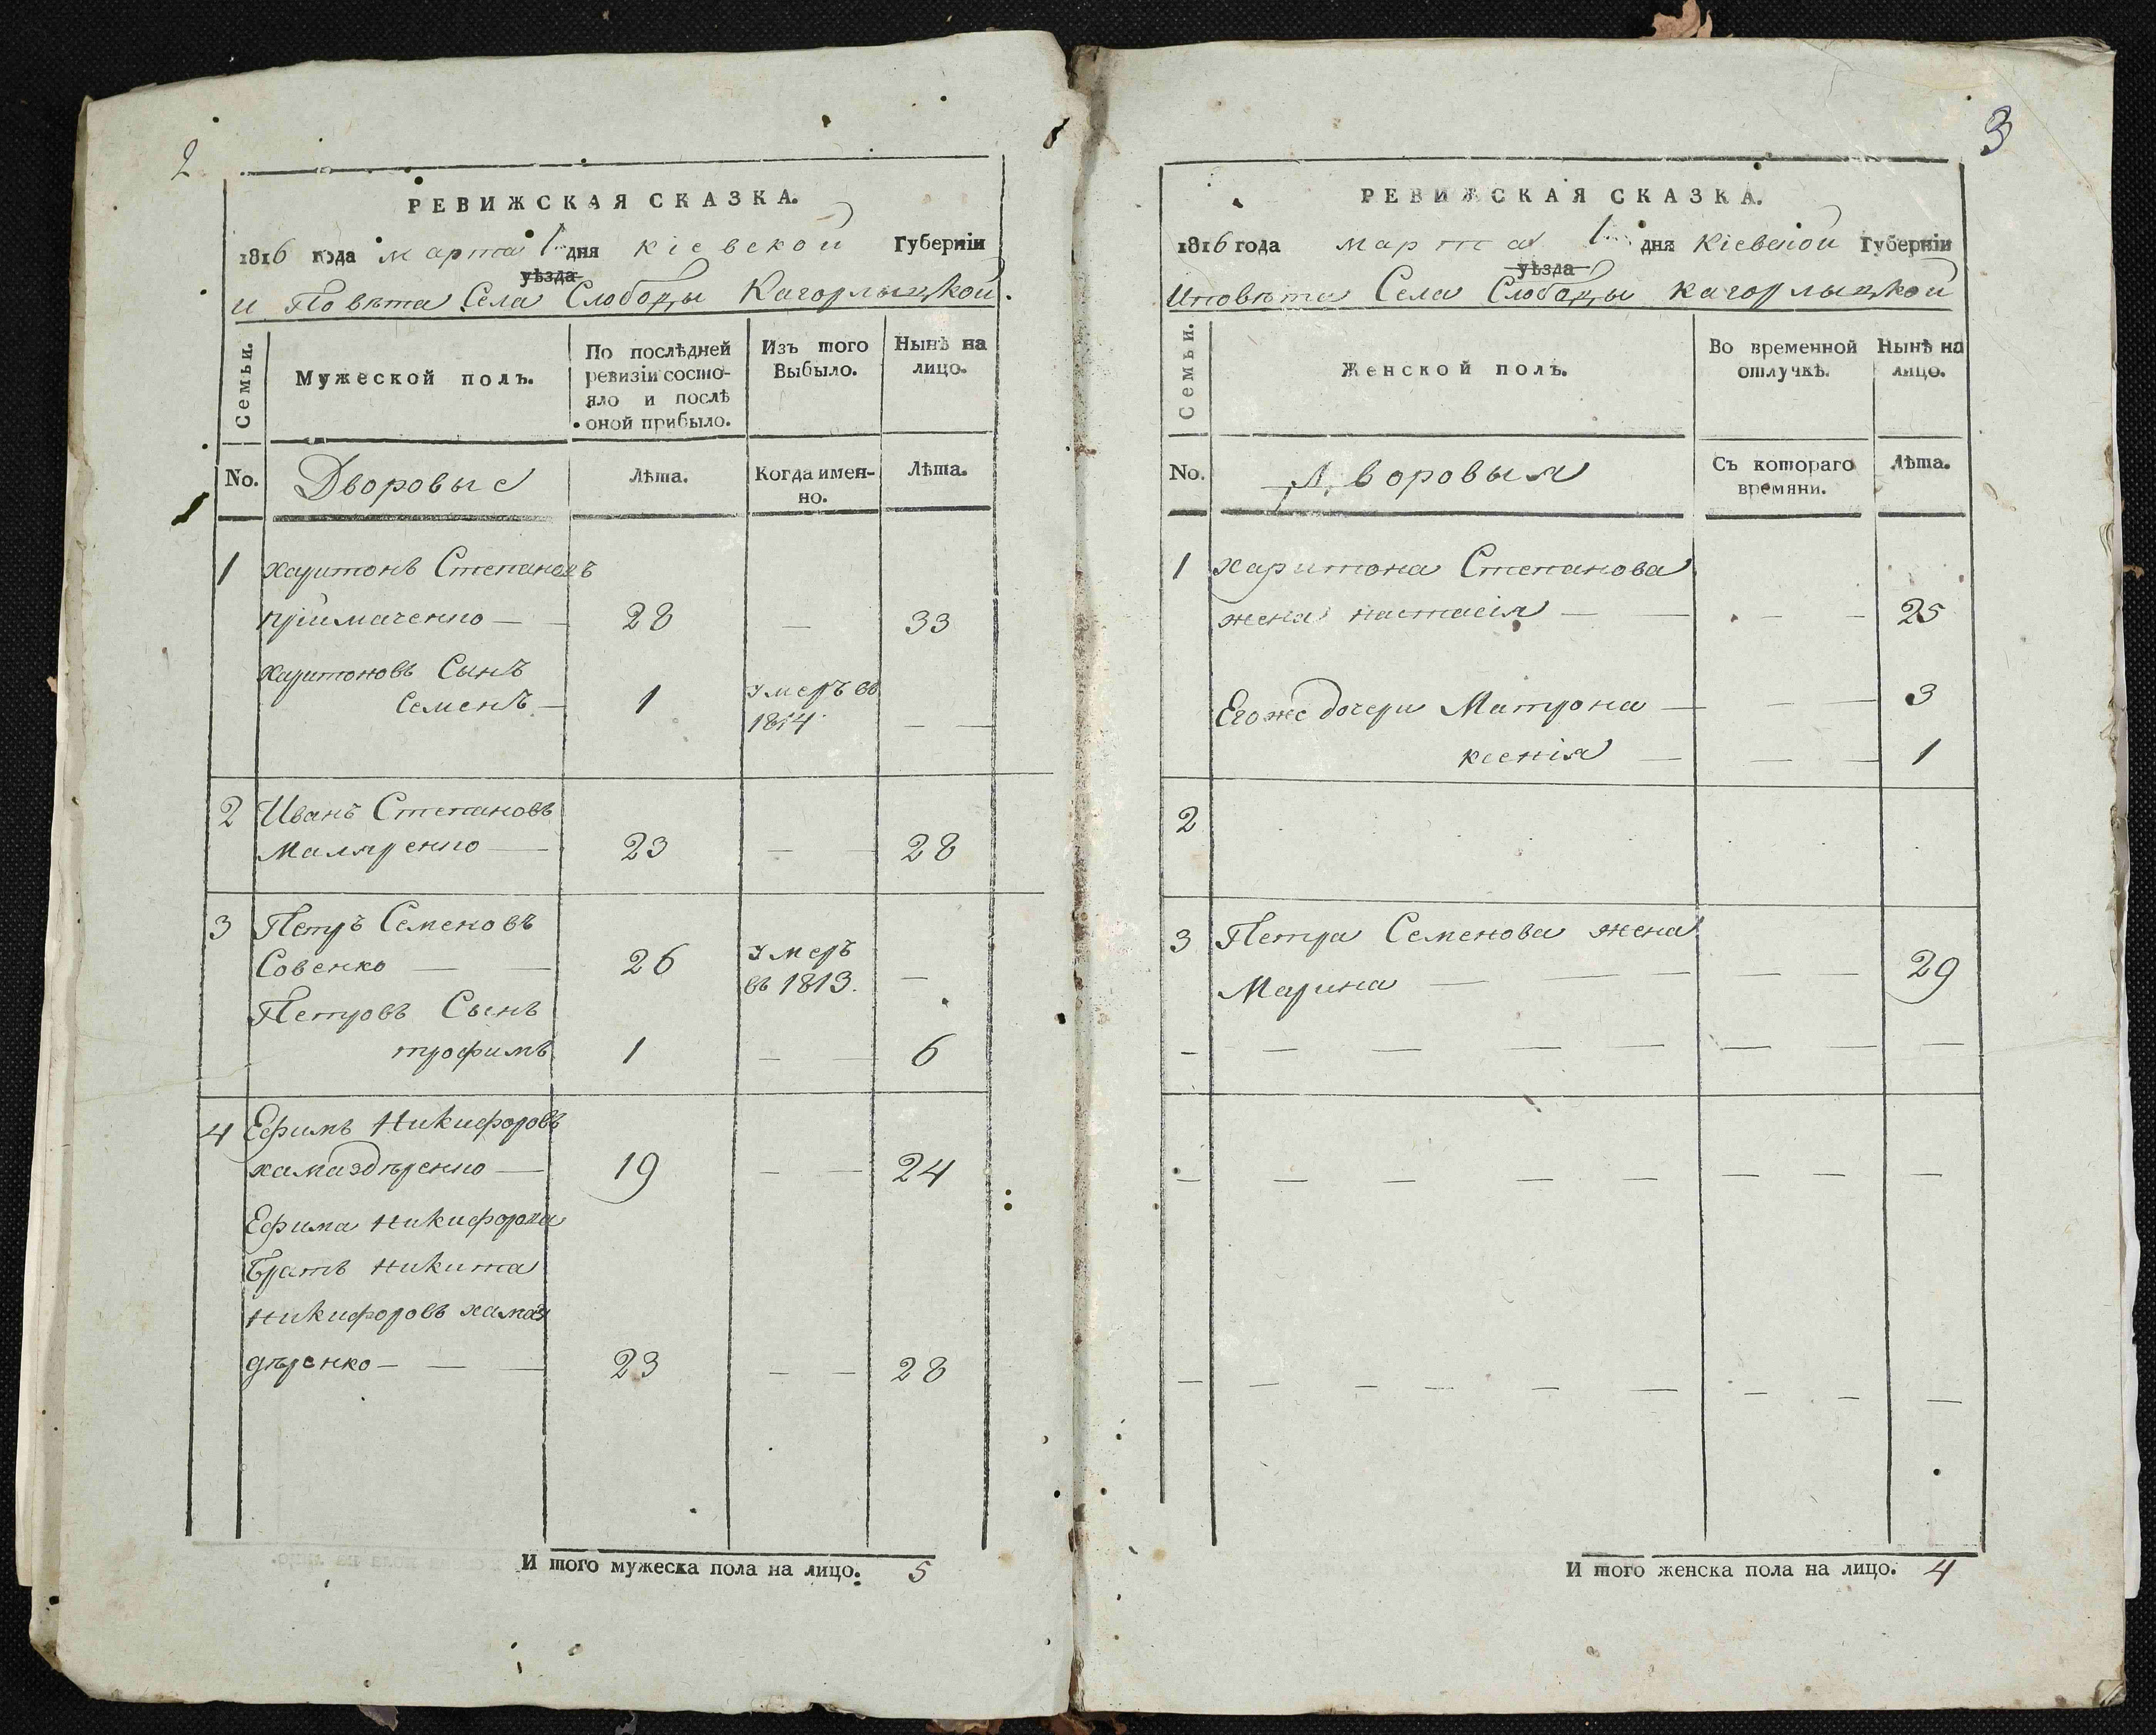 2
РЕВИЖСКАЯ СКАЗКА.
1816 года марта 1 дня кіевской Губерніи
уѣзда
и Повѣта Села Слободы Кагорлыцкой.
Семьи.
Мужеской полъ.
По послѣдней ревизіи состояло и послѣ оной прибыло.
Изъ того Выбыло.
Нынѣ на лицо.
No.
Дворовые
Лѣта.
Когда именно.
Лѣта.
1 харитонъ Степановъ
пріймаченко — — 28 — 33
харитоновъ Сынъ
Семенъ — 1 умеръ въ
1814. — —
2 Иванъ Степановъ
Маляренко — 23 — — 28
3 Петръ Семеновъ
Совенко — — 26 умеръ
въ 1813. —
Петровъ Сынъ
трофимъ 1 — — 6
4 Ефимъ Никифоровъ
хамаздѣренко — 19 — — 24
Ефима Никифорова
Братъ Никита
Никифоровъ хамаз
дѣренко — — — 23 — — 28
И того мужеска пола на лицо. 5
3
РЕВИЖСКАЯ СКАЗКА.
1816 года марта 1 дня Кіевской Губерніи
уѣзда
Иповѣта Села Слободы Кагорлыцкой
Семьи.
Женской полъ.
Во временной отлучкѣ.
Нынѣ на лицо.
No.
Дворовыя
Съ котораго времяни.
Лѣта.
1 харитона Степанова
жена настасія — — — — 25
Егоже дочери Матрона — — — 3
ксенія — — — 1
2
3 Петра Семенова жена
Марина — — — — — 29
— — — — — — — —
— — — — — — — —
— — — — — — — — —
И того женска пола на лицо. 4